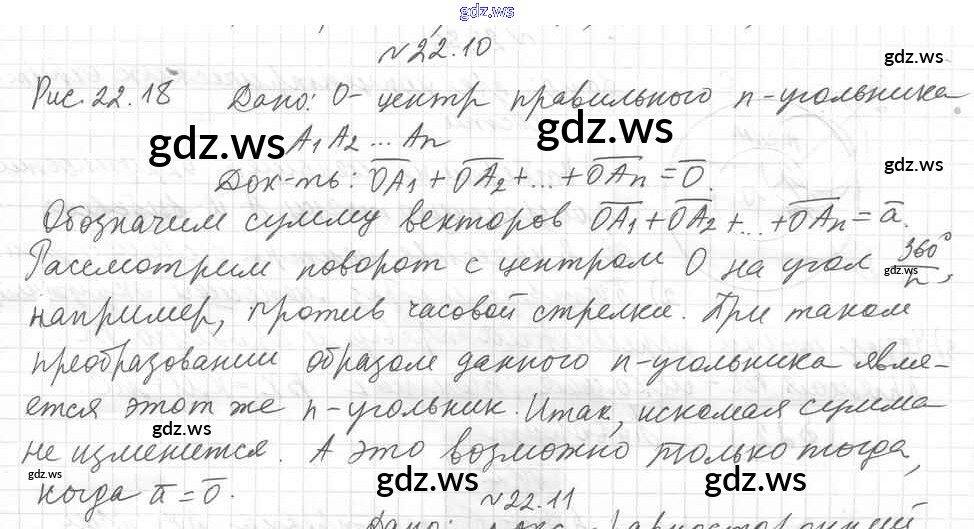 gdz.ws
№22.10
gdz.ws
Рис. 22.18 Дано: О- центр правильного n-угольника
gdz.ws A₁ A₂ ... Aₙ gdz.ws
gdz.ws
Док-ть: O̅A̅₁ + O̅A̅₂ + ... + O̅A̅ₙ = 0̅.
Обозначим сумму векторов O̅A̅₁ + O̅A̅₂ + ... + O̅A̅ₙ = a̅.
Рассмотрим поворот с центром О на угол 360°/n,
gdz.ws
например, против часовой стрелки. При таком
преобразовании образом данного n-угольника явля-
ется этот же n-угольник. Итак, искомая сумма
gdz.ws
не изменяется. А это возможно только тогда,
gdz.ws
когда a̅ = 0̅.
gdz.ws gdz.ws gdz.ws
№22.11
Дано: